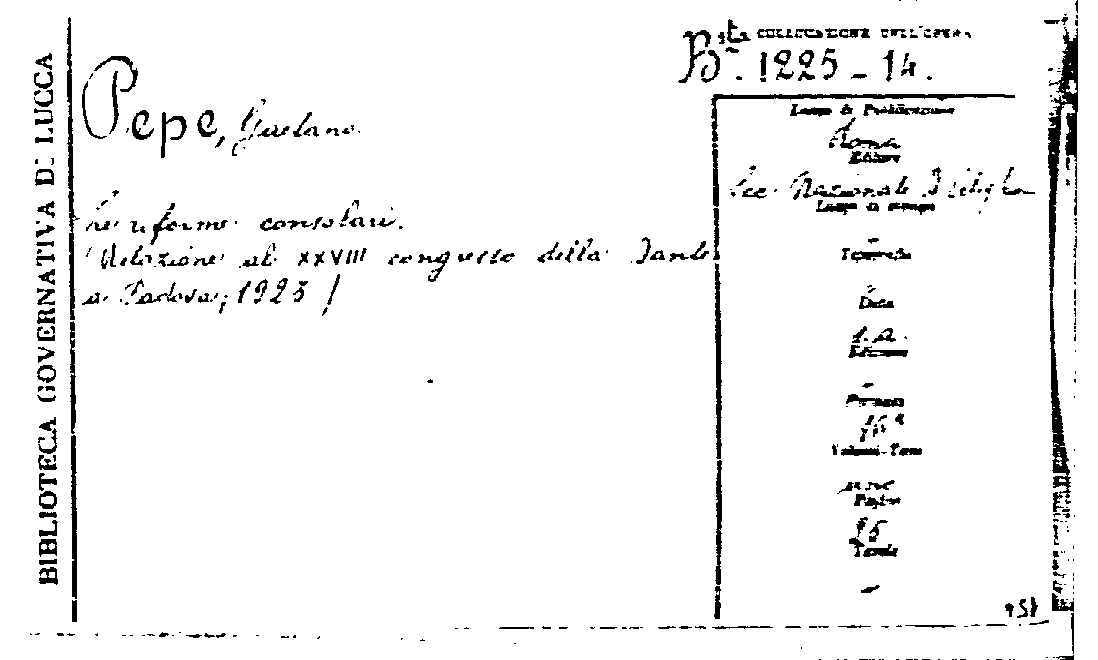 BIBLIOTECA GOVERNATIVA DI LUCCA
COLLOCAZIONE DELL'OPERA
B.sta 1225 - 14.
Pepe, Gaetano
Le riforme consolari.
(Relazione al XXVIII congresso della Dante
a Padova, 1923)
Luogo di Pubblicazione
Roma
Editore
Soc. Nazionale D.
Luogo di stampa
-
Tipografia
-
Data
s.a.
Edizione
-
Formato
16°
Volumi - Tomi
uno
Pagine
25
Tavole
-